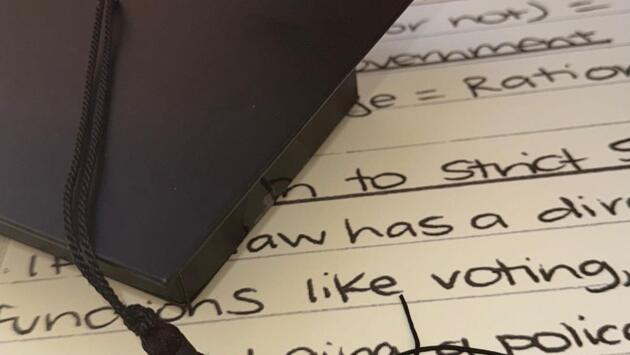 or not) =
overnment
ge = Ration
n to strict S
law has a dire
functions like voting,
a police